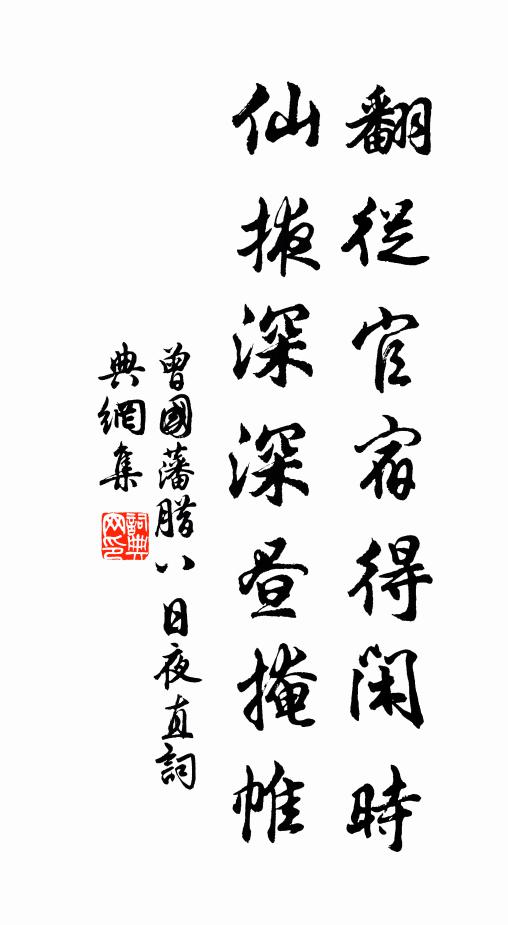 翻從官宿得閑時
仙掖深深昼掩帷
曾國藩腊八日夜直詞
典網集
詞典
网印